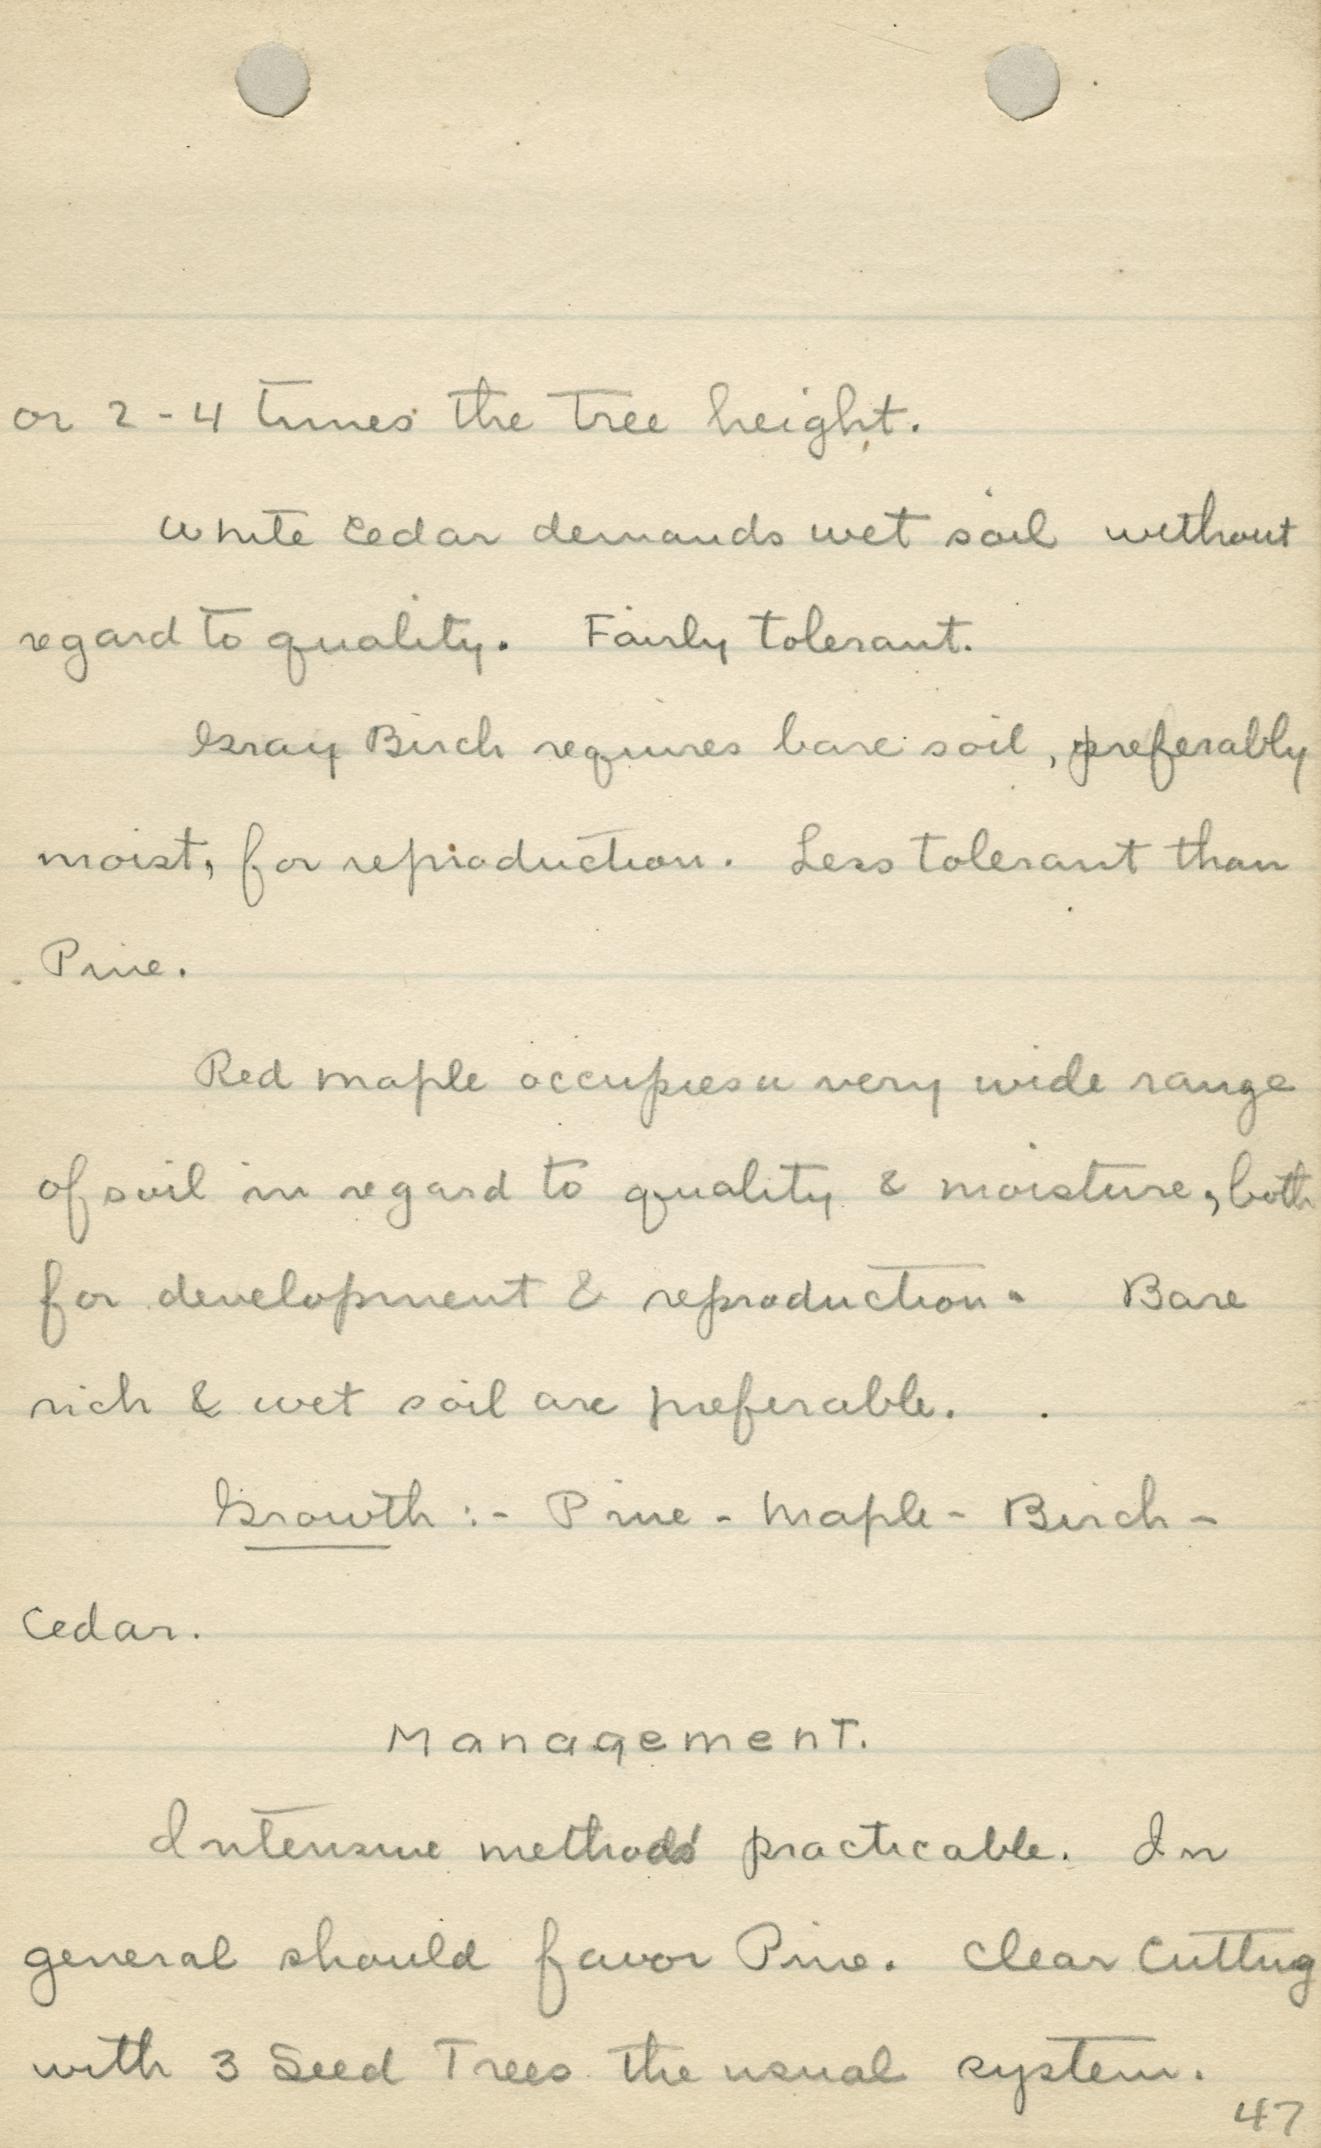 or 2-4 times the Tree height.
White Cedar demands wet soil without
regard to quality. Fairly tolerant.
Gray Birch requires bare soil, preferably
moist, for reproduction. Less tolerant than
Pine.
Red maple occupies a very wide range
of soil in regard to quality & moisture, both
for development & reproduction. Bare
rich & wet soil are preferable.
Growth :- Pine - Maple - Birch -
Cedar.
Management.
Intensive methods practicable. In
general should favor Pine. Clear Cutting
with 3 Seed Trees the usual system.
47